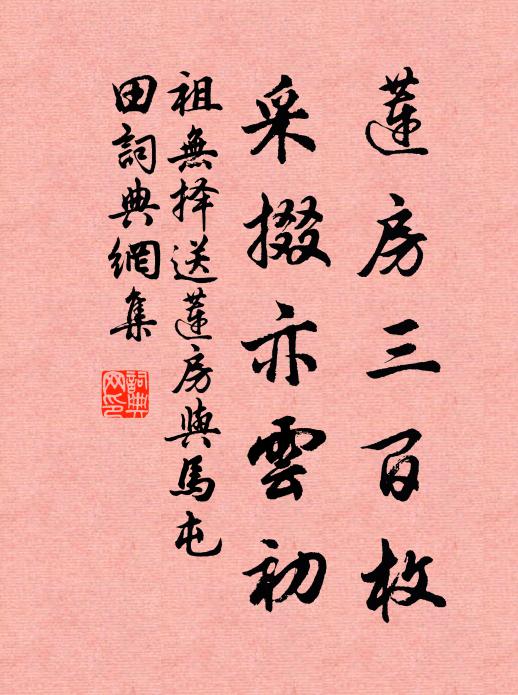 蓮房三百枚
采掇亦雲初
祖無择送蓮房與馬屯
田詞典網集
詞典
网印